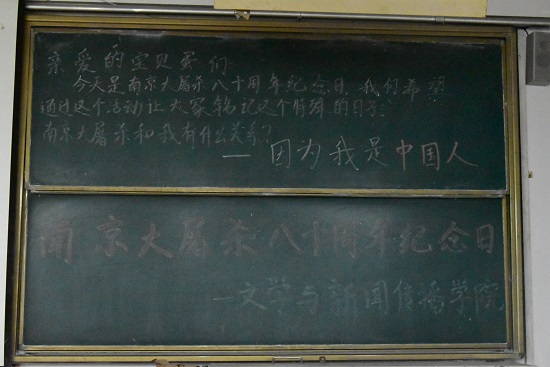 亲爱的宝贝蛋们:
今天是南京大屠杀八十周年纪念日,我们希望
通过这个活动让大家铭记这个特殊的日子:
南京大屠杀和我有什么关系?
——因为我是中国人
南京大屠杀八十周年纪念日
——文学与新闻传播学院